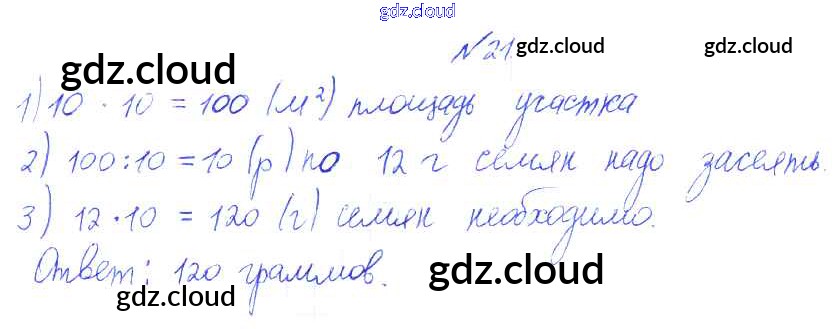 gdz.cloud
№ 21. gdz.cloud gdz.cloud
gdz.cloud
1) 10 · 10 = 100 (м²) площадь участка
2) 100:10 = 10 (р) по 12 г семян надо засеять.
3) 12 · 10 = 120 (г) семян необходимо.
Ответ: 120 граммов.
gdz.cloud gdz.cloud